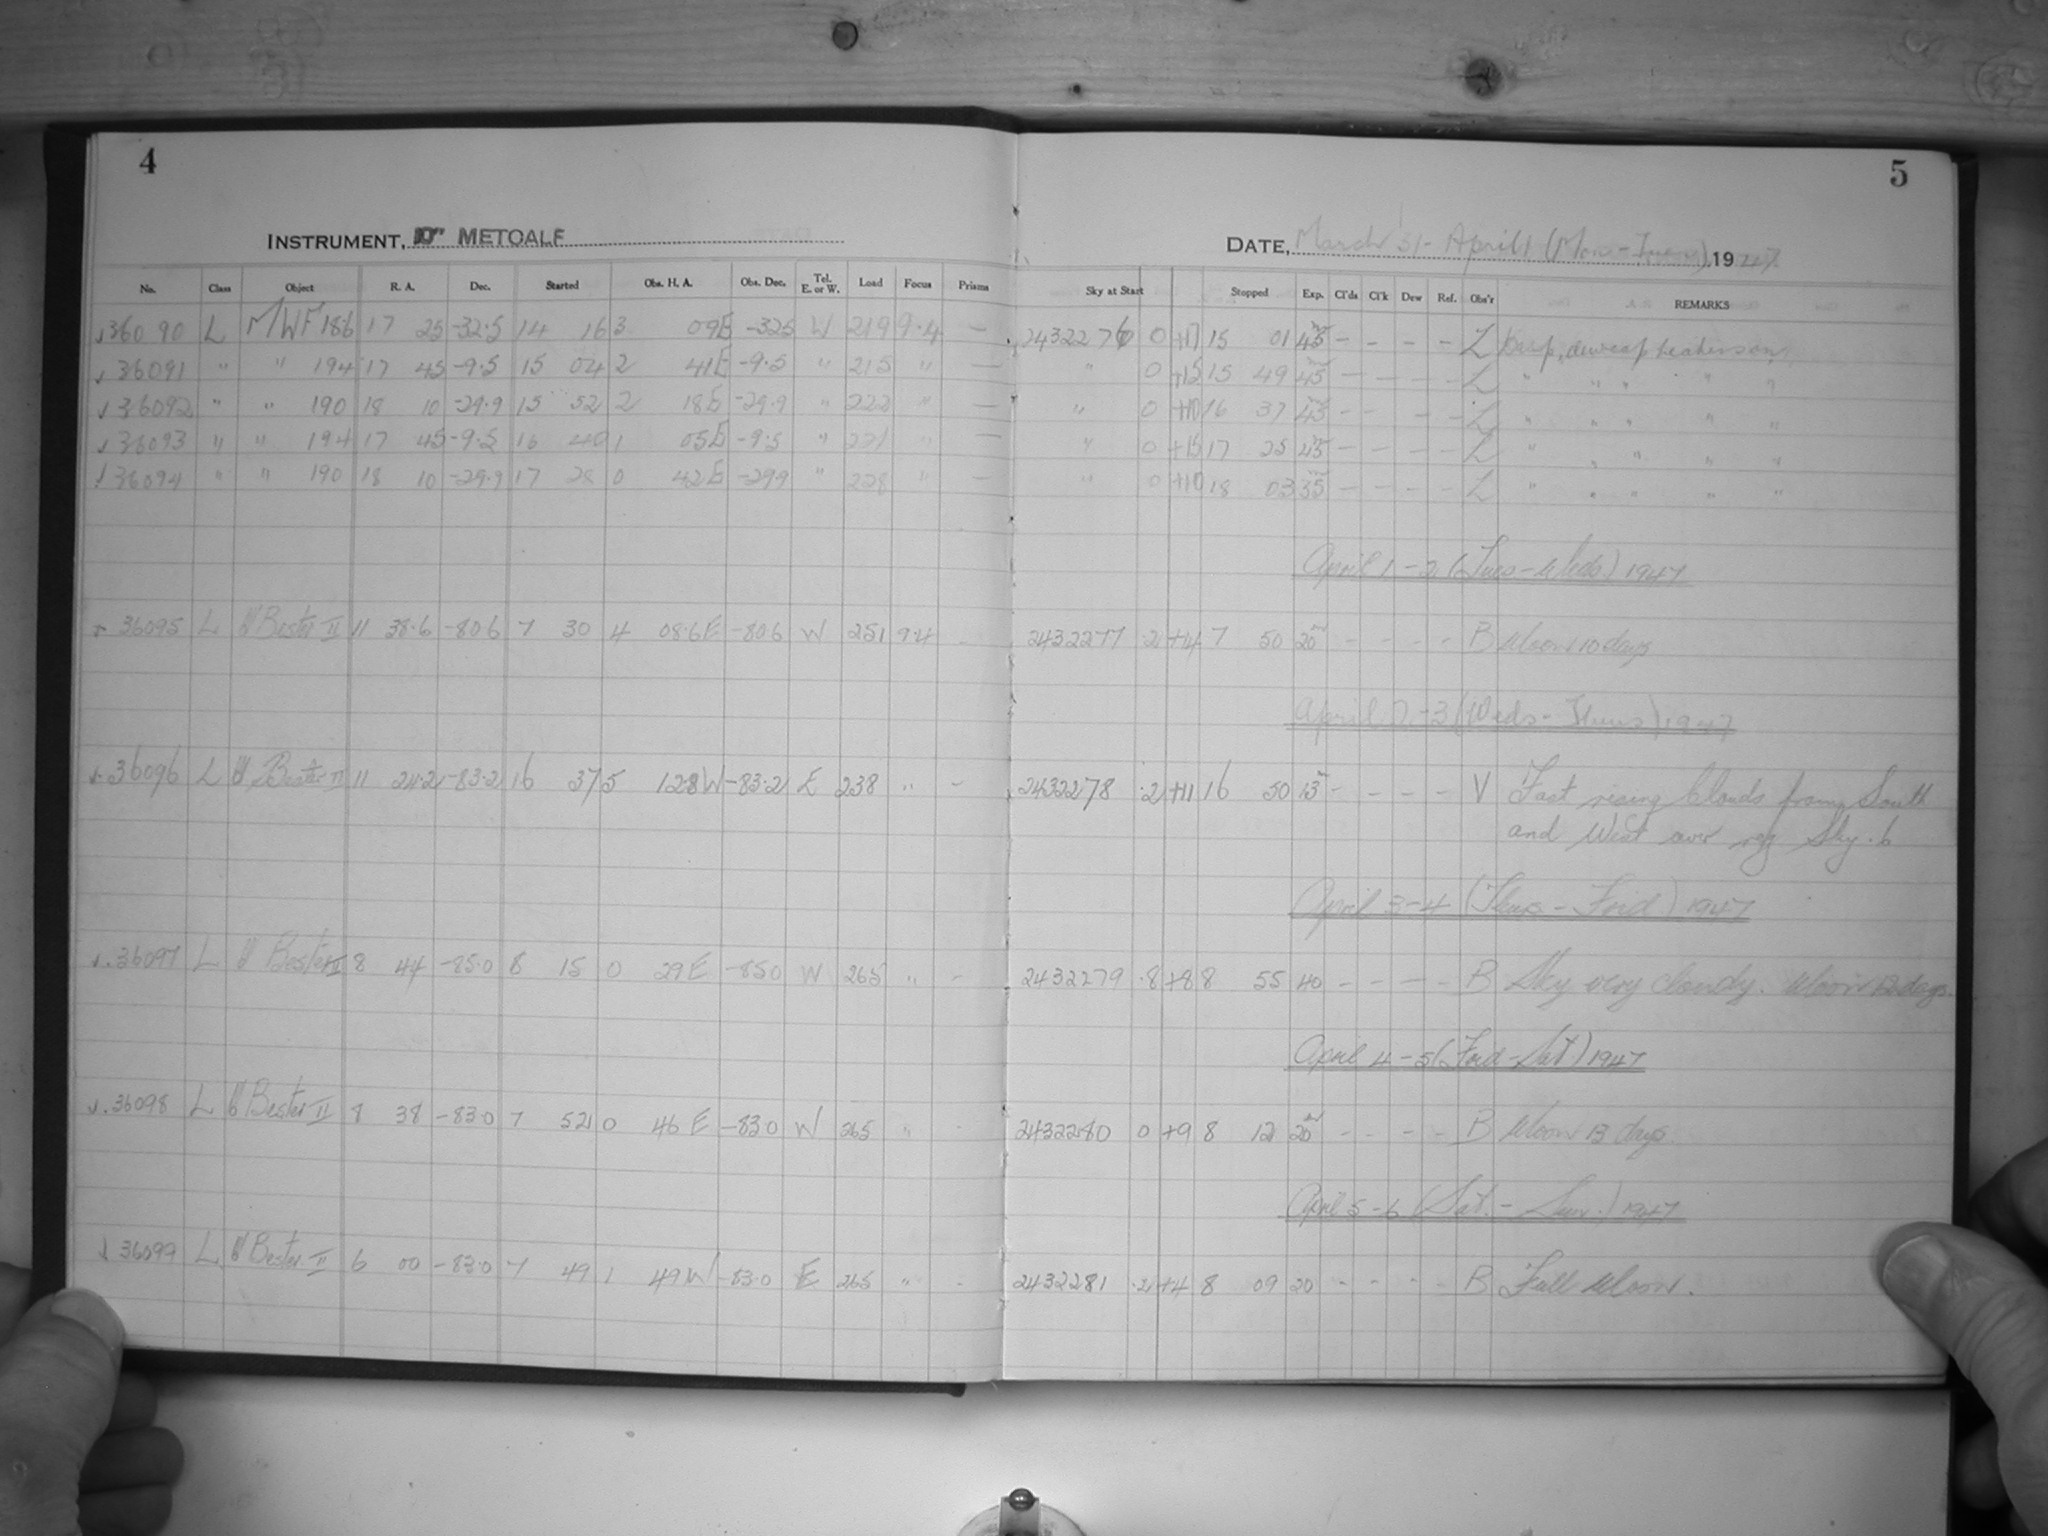 4
INSTRUMENT, 10" METCALF
No. Class Object R. A. Dec. Started Obs. H. A. Obs. Dec. Tel. E. or W. Load Focus Prisms
36090 L MWF 186 17 25 -32.5 14 16 3 09E -325 W 219 9.4 —
36091 " " 194 17 45 -9.5 15 04 2 41E -9.5 " 215 " —
36092 " " 190 18 10 -29.9 15 52 2 18E -29.9 " 222 " —
36093 " " 194 17 45 -9.5 16 40 1 05E -9.5 " 231 " —
36094 " " 190 18 10 -29.9 17 28 0 42E -299 " 228 " —
36095 L Bester II 11 38.6 -806 7 30 4 08.6E -806 W 251 9.4 -
36096 L Bester II 11 24.2 -83.2 16 37 5 128W -83.2 E 238 " -
36097 L Bester II 8 44 -85.0 8 15 0 29E -850 W 265 " -
36098 L Bester II 8 38 -830 7 52 0 46E -830 W 265 " -
36099 L Bester II 6 00 -83.0 7 49 1 49W -83.0 E 265 " -
5
DATE, March 31 - April 1 (Mon - Tues) 1947
Sky at Start Stopped Exp. Cl'ds Cl'k Dew Ref. Obs'r REMARKS
2432276 0 +17 15 01 45 - - - - L dewcap heaters on
" 0 +15 15 49 45 - - - - L " " " " "
" 0 +10 16 37 45 - - - - L " " " " "
" 0 +15 17 25 45 - - - - L " " " " "
" 0 +10 18 03 35 - - - - L " " " " "
April 1-2 (Tues-Weds) 1947
2432277 .2 +4 7 50 20 - - - - B Moon 10 days
April 2-3 (Weds-Thurs) 1947
2432278 .2 +11 16 50 13 - - - - V Fast rising Clouds from South
and West over reg Sky .6
April 3-4 (Thurs-Frid) 1947
2432279 .8 +8 8 55 40 - - - - B Sky very cloudy. Moon 12 days.
April 4-5 (Frid-Sat) 1947
2432280 0 +9 8 12 20 - - - - B Moon 13 days.
April 5-6 (Sat.-Sun.) 1947
2432281 .2 +4 8 09 20 - - - - B Full Moon.